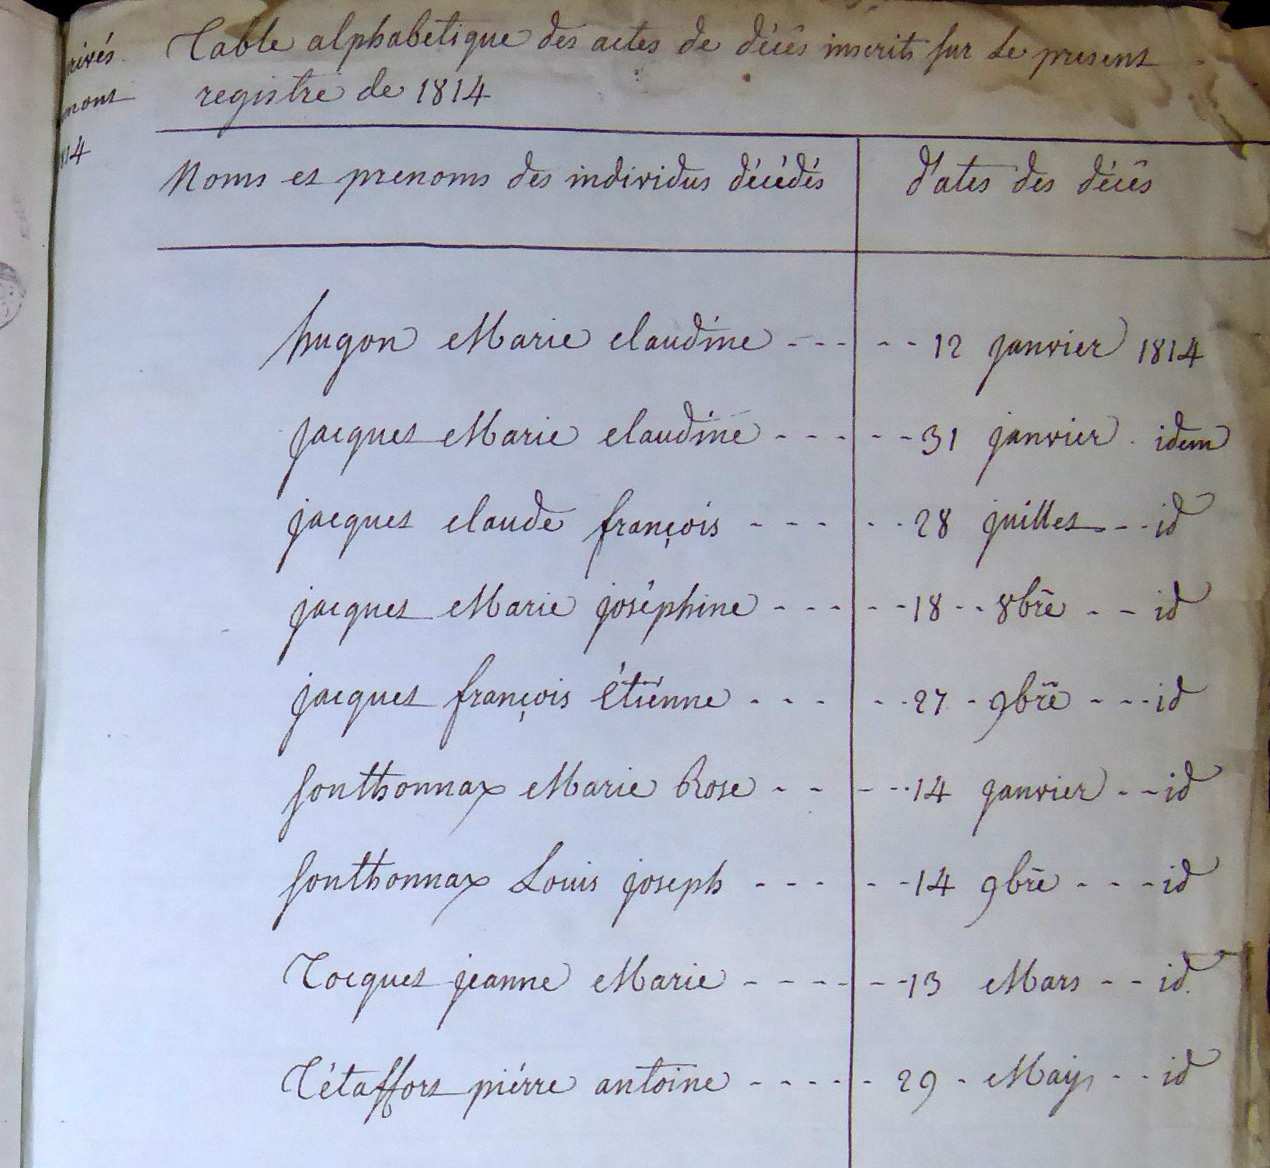 rivés
mont
814
Table alphabetique des actes de décès inscrit sur Le present
registre de 1814
Noms et prenoms des individus décédés dates des décès
hugon Marie claudine - - - - - 12 janvier 1814
jacquet Marie claudine - - - - - 31 janvier . idem
jacquet claude françois - - - - . . 28 juillet - - id
jacquet Marie joséphine - - - - - - 18 - - 8bre - - id
jacquet françois étienne - - - - - 27 - 9bre - - - id
Sonthonnax Marie Rose - - - - - 14 janvier - - id
Sonthonnax Louis joseph - - - - - 14 9bre - - - id
Tocquet jeanne Marie - - - - - - 13 Mars - - id
Tétaffort piérre antoine - - - - - 29 - May - - id